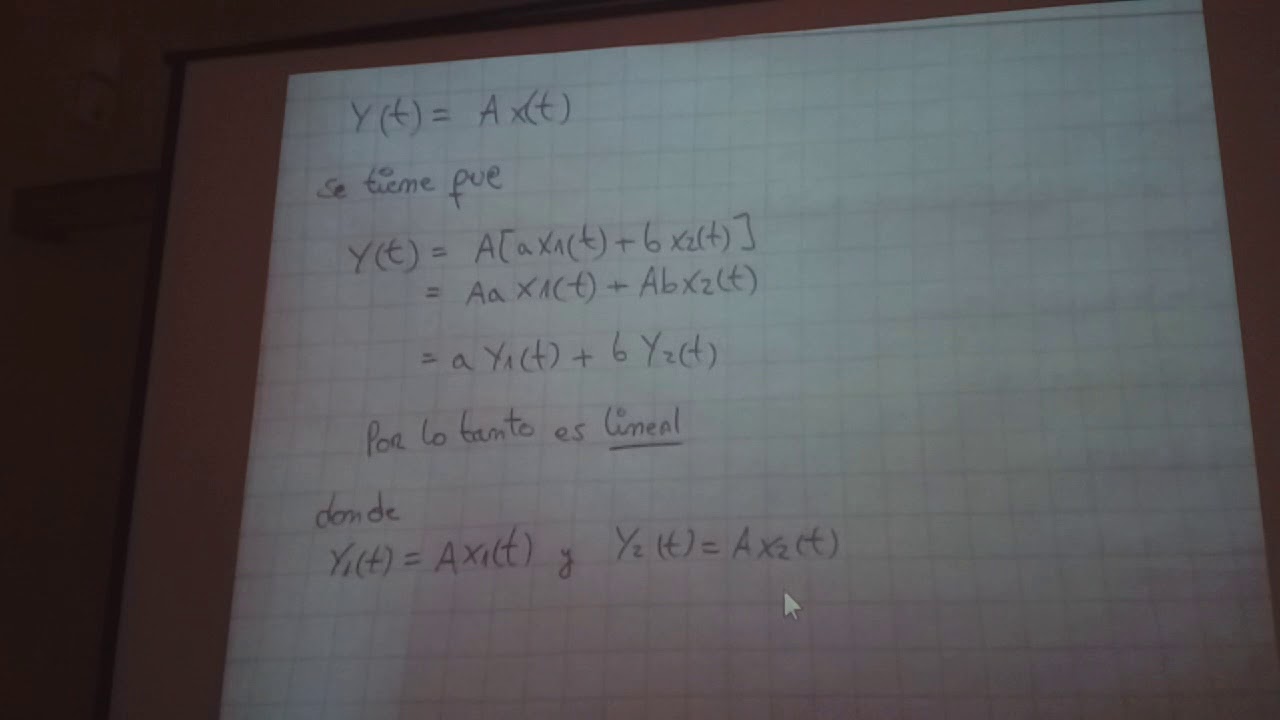 Y(t) = A x(t)
se tiene que
Y(t) = A[a x1(t) + b x2(t)]
= Aa x1(t) + Ab x2(t)
= a Y1(t) + b Y2(t)
Por lo tanto es lineal
donde
Y1(t) = A x1(t) y Y2(t) = A x2(t)